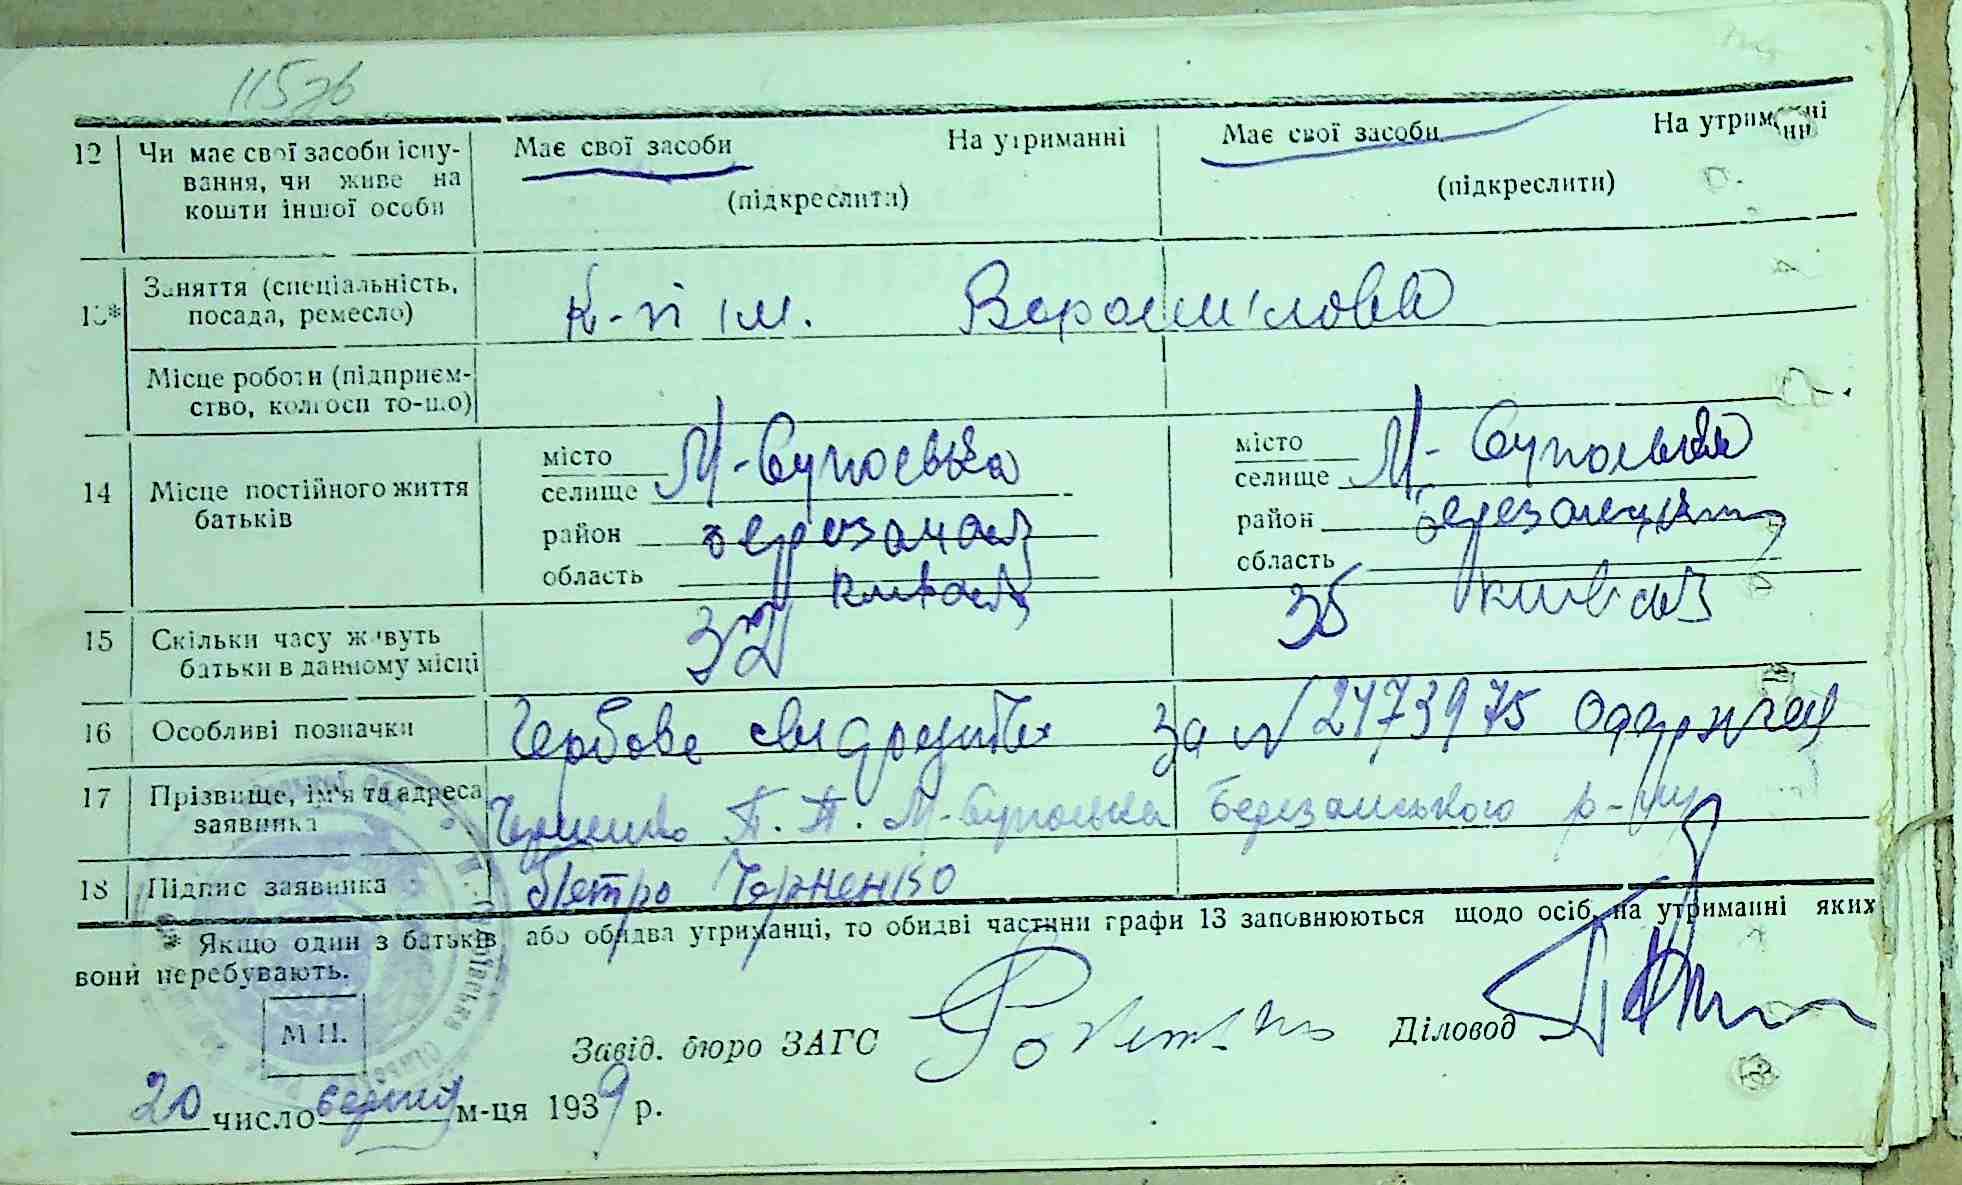 115зв
12 Чи має свої засоби існу- Має свої засоби На утриманні Має свої засоби На утриманні
вання, чи живе на (підкреслити) (підкреслити)
кошти іншої особи
13* Заняття (спеціальність, К-п ім. Ворошилова
посада, ремесло)
Місце роботи (підприєм-
ство, колгосп то-що)
14 Місце постійного життя місто М-Супоевка місто М-Супоевка
батьків селище селище
район березанск район березанск
область киівск область киівск
15 Скільки часу живуть 32 35
батьки в данному місці
16 Особливі позначки Гербове свидоцтво за N 2473975 Одержав
17 Прізвище, ім'я та адреса Черненко П. П. М-Супоевка Березанського р-ну
заявника
18 Підпис заявника Петро Черненко
* Якщо один з батьків або обидва утриманці, то обидві частини графи 13 заповнюються щодо осіб, на утриманні яких
вони перебувають.
М П.
Завід. бюро ЗАГС Діловод
20 число серпня м-ця 1939 р.